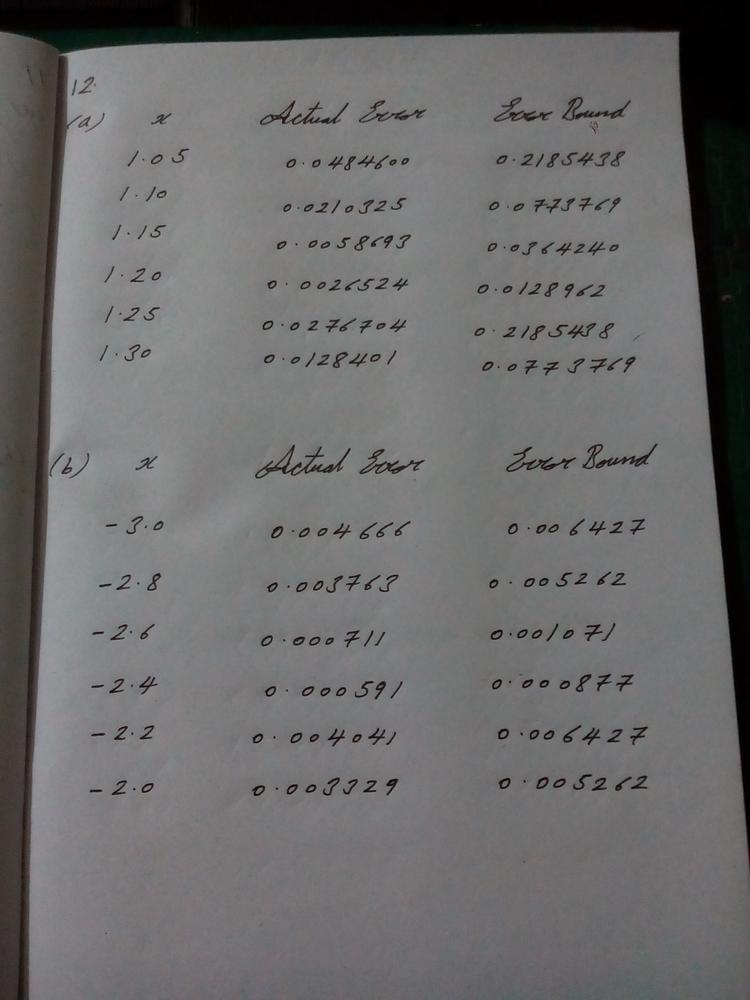 12.
(a) x Actual Error Error Bound
1.05 0.0484600 0.2185438
1.10 0.0210325 0.0773769
1.15 0.0058693 0.0364240
1.20 0.0026524 0.0128962
1.25 0.0276704 0.2185438
1.30 0.0128401 0.0773769
(b) x Actual Error Error Bound
-3.0 0.004666 0.006427
-2.8 0.003763 0.005262
-2.6 0.000711 0.001071
-2.4 0.000591 0.000877
-2.2 0.004041 0.006427
-2.0 0.003329 0.005262